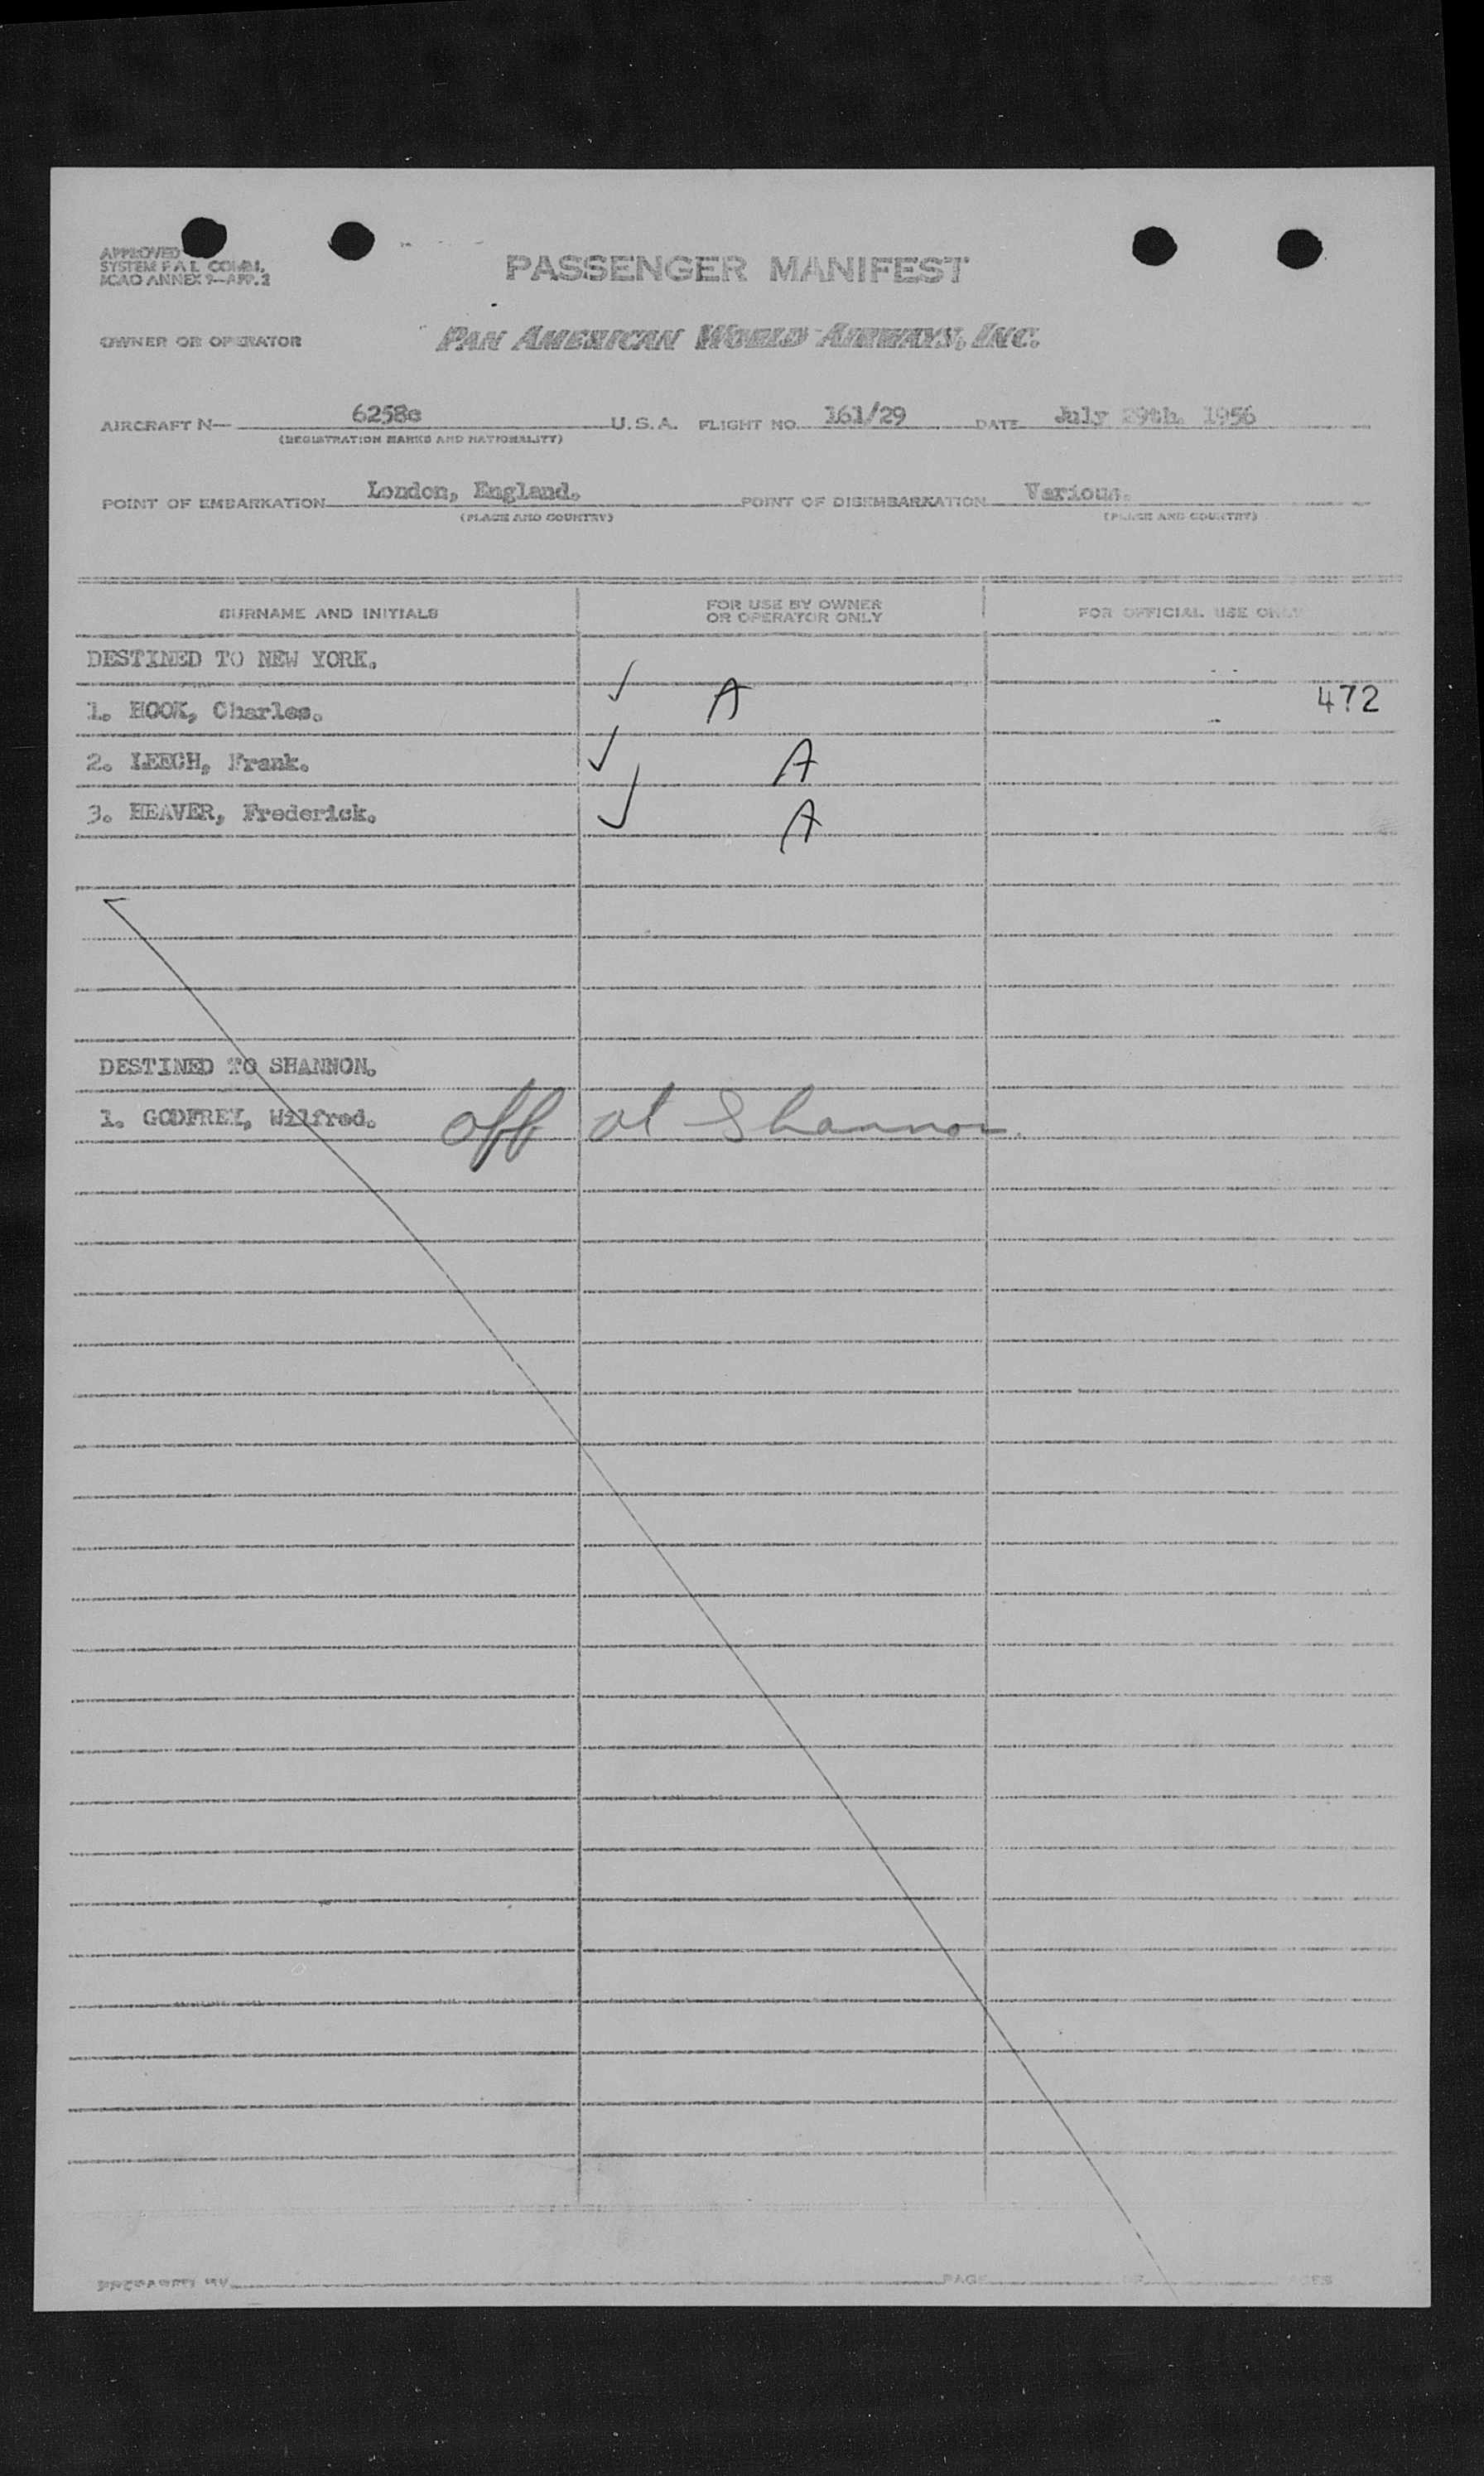 APPROVED
SYSTEM F A L COM.
ICAO ANNEX 9—APP. 2
PASSENGER MANIFEST
OWNER OR OPERATOR
PAN AMERICAN WORLD AIRWAYS, INC.
AIRCRAFT N— 6258c U.S.A. FLIGHT NO. 161/29 DATE July 29th. 1956
(REGISTRATION MARKS AND NATIONALITY)
POINT OF EMBARKATION London, England. POINT OF DISEMBARKATION Various.
(PLACE AND COUNTRY) (PLACE AND COUNTRY)
SURNAME AND INITIALS FOR USE BY OWNER OR OPERATOR ONLY FOR OFFICIAL USE ONLY
DESTINED TO NEW YORK.
1. HOOK, Charles. ✓ A 472
2. LEECH, Frank. ✓ A
3. HEAVER, Frederick. ✓ A
DESTINED TO SHANNON.
1. GODFREY, Wilfred. off at Shannon.
PREPARED BY PAGE OF PAGES